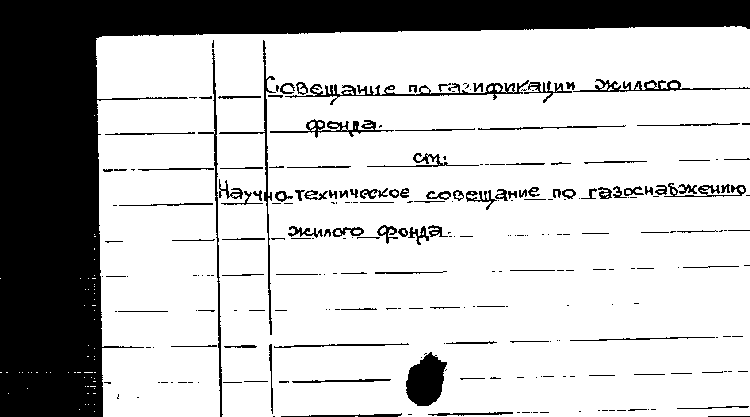 Совещание по газификации жилого
фонда.
см:
Научно-техническое совещание по газоснабжению
жилого фонда.